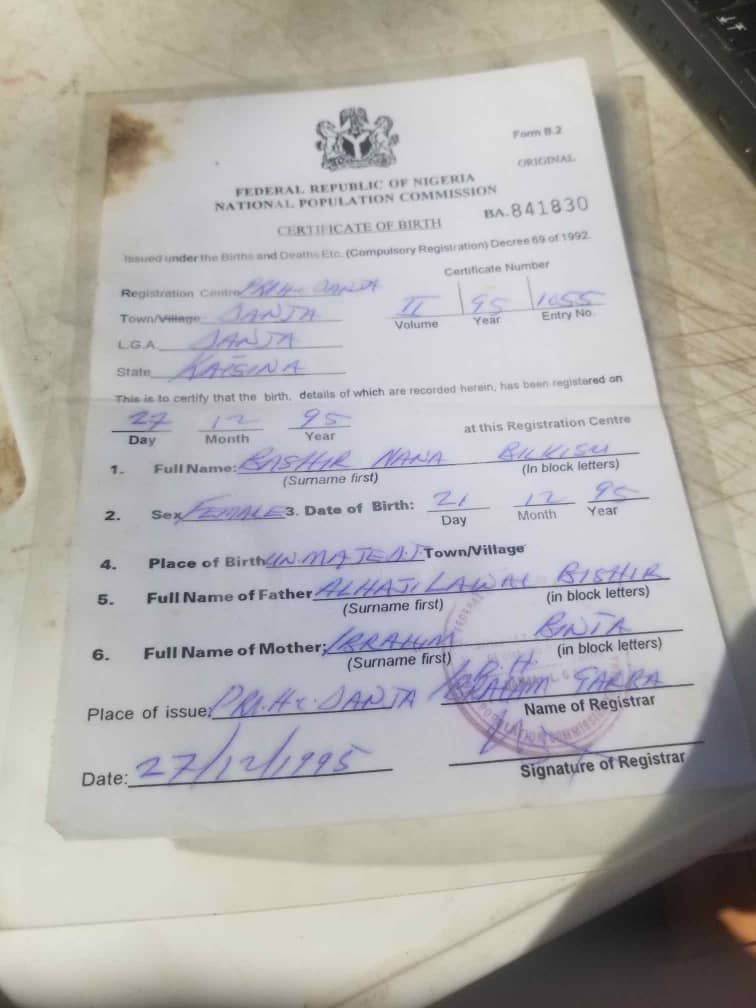 Form B.2
ORIGINAL
FEDERAL REPUBLIC OF NIGERIA
NATIONAL POPULATION COMMISSION
BA. 841830
CERTIFICATE OF BIRTH
Issued under the Births and Deaths Etc. (Compulsory Registration) Decree 69 of 1992.
Certificate Number
Registration Centre DANJA
Town/Village DANJA
II 95 1055
Volume Year Entry No.
L.G.A. DANJA
State KATSINA
This is to certify that the birth, details of which are recorded herein, has been registered on
27 12 95 at this Registration Centre
Day Month Year
1. Full Name: BASHIR NANA BILKISU
(Surname first) (In block letters)
2. Sex FEMALE 3. Date of Birth: 21 12 95
Day Month Year
4. Place of Birth Town/Village
5. Full Name of Father ALHAJI LAWAL BISHIR
(Surname first) (in block letters)
6. Full Name of Mother: IBRAHIM BINTA
(Surname first) (in block letters)
Place of issue: DANJA IBRAHIM GARBA
Name of Registrar
Date: 27/12/1995
Signature of Registrar